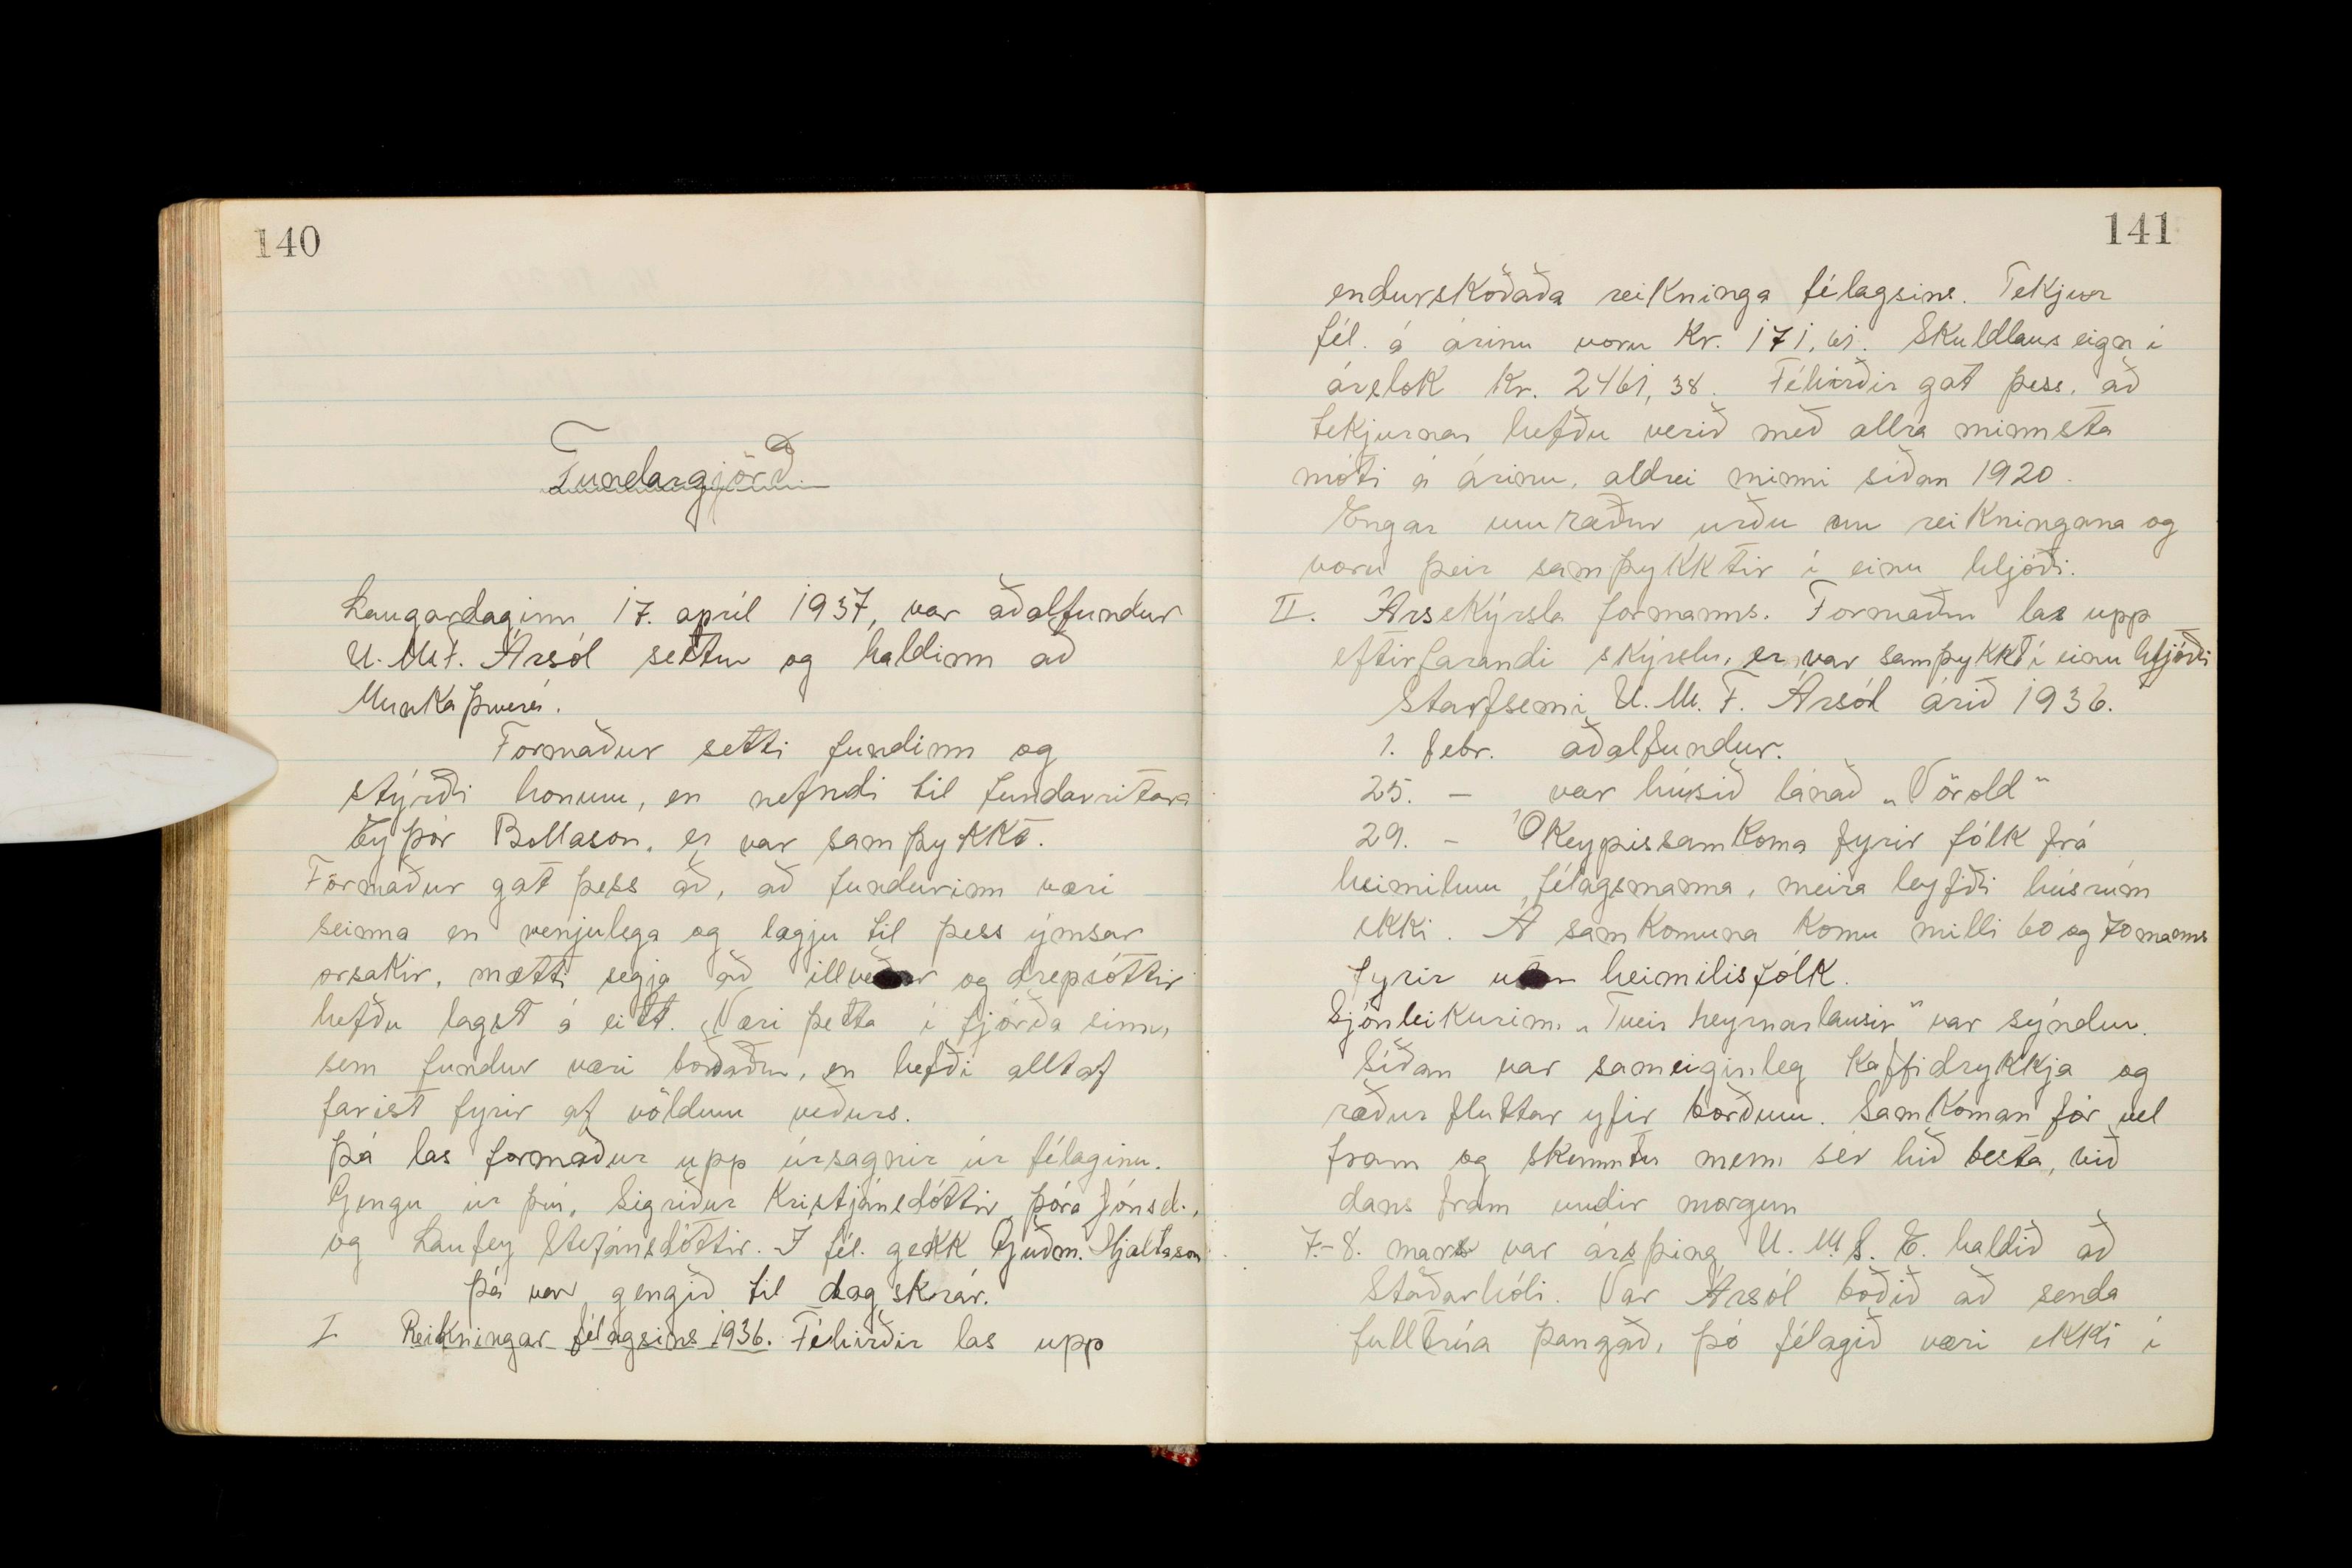 140
Fundargjörð
Laugardaginn 17. apríl 1937, var aðalfundur
U.M.F. Ársól settur og haldinn að
Munkaþverá.
Formaður setti fundinn og
stýrði honum, en nefndi til fundarritara
Eyþór Bollason, er var samþykkt.
Formaður gat þess að, að fundurinn væri
seinna en venjulega og lægju til þess ýmsar
orsakir, mætti segja að illveður og drepsóttir
hefðu lagst á eitt. Væri þetta í fjórða sinn,
sem fundur væri boðaður, en hefði alltaf
farist fyrir af völdum veðurs.
Þá las formaður upp úrsagnir úr félaginu.
Gengu úr þrí, Sigríður Kristjánsdóttir, Þóra Jónsd.,
og Laufey Stefánsdóttir. Í fél. gekk Guðm. Hjaltason.
Þá var gengið til dagskrár.
I Reikningar félagsins 1936. Féhirðir las upp
141
endurskoðaða reikninga félagsins. Tekjur
fél. á árinu voru Kr. 171,61. Skuldlaus eign í
árslok Kr. 2461,38. Féhirðir gat þess, að
tekjurnar hefðu verið með allra minnsta
móti á árinu, aldrei minni síðan 1920.
Engar umræður urðu um reikningana og
voru þeir samþykktir í einu hljóði.
II. Ársskýrsla formanns. Formaður las upp
eftirfarandi skýrslu, er var samþykkt í einu hljóði
Starfsemi U.M.F. Ársól árið 1936.
1. febr. aðalfundur.
25. — var húsið lánað „Vöröld"
29. — Ókeypissamkoma fyrir fólk frá
heimilum félagsmanna, meira leyfði húsrúm
ekki. Á samkomuna komu milli 60 og 70 manns
fyrir utan heimilisfólk.
Sjónleikurinn „Tveir heyrnarlausir" var sýndur.
Síðan var sameiginleg kaffidrykkja og
ræður fluttar yfir borðum. Samkoman fór vel
fram og skemmtu menn sér hið besta, við
dans fram undir morgun
7.-8. mars var ársþing U.M.S.E. haldið að
Staðarhóli. Var Ársól boðið að senda
fulltrúa þangað, þó félagið væri ekki í